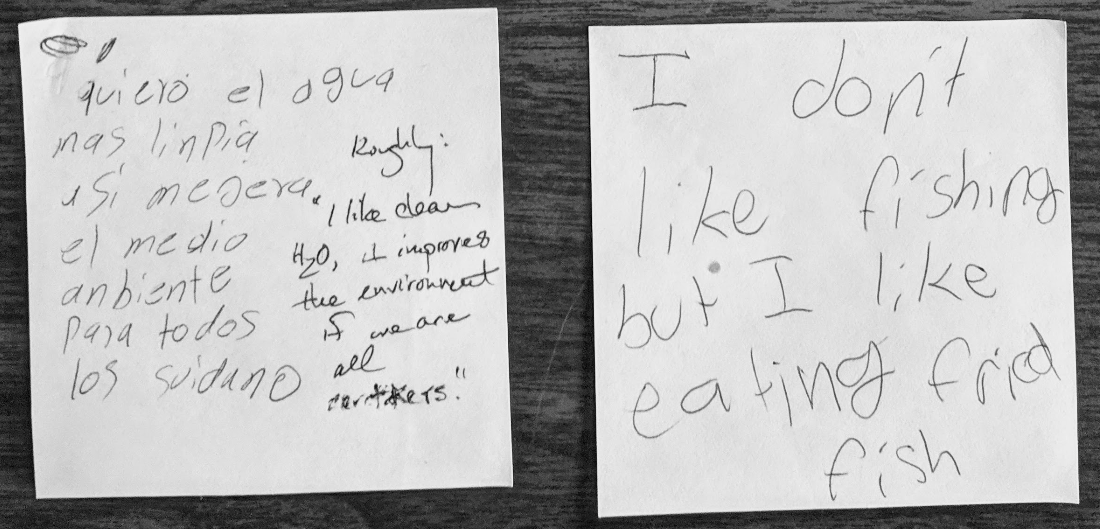 quiero el agua
mas linpia
asi mejera
el medio
anbiente
para todos
los suidano
Roughly:
"I like clean
H2O, it improves
the environment
if we are
all
caretakers."
I don't
like fishing
but I like
eating fried
fish